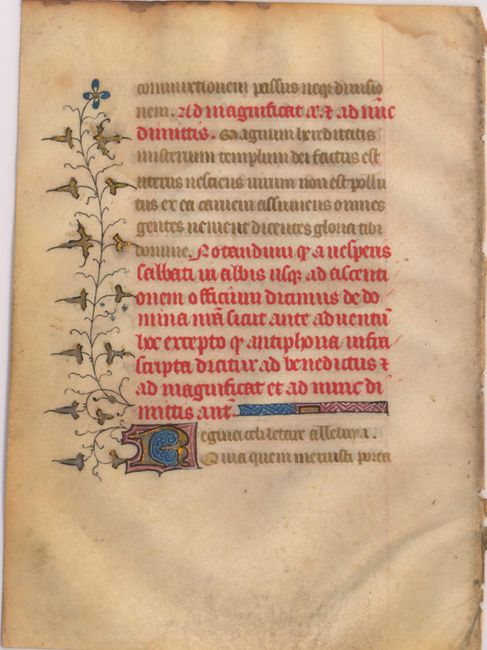 commixtionem passus neqz diuisio
nem. Ad magnificat a'. et ad nūc
dimittis. Magnum hereditatis
misterium templum dei factus est
uterus nesciens uirum non est pollu
tus ex ea carnem assumens omnes
gentes uenient dicentes gloria tibi
domine. Notandum qͥ a uesperis
sabbati in albis usqz ad ascenti
onem officium dicimus de do
mina nr̄a sicut ante aduentū
hoc excepto qͥ antiphona infra
scripta dicitur ad benedictus ⁊
ad magnificat et ad nunc di
mittis ant̄.
Regina celi letare alleluya.
Quia quem meruisti porta